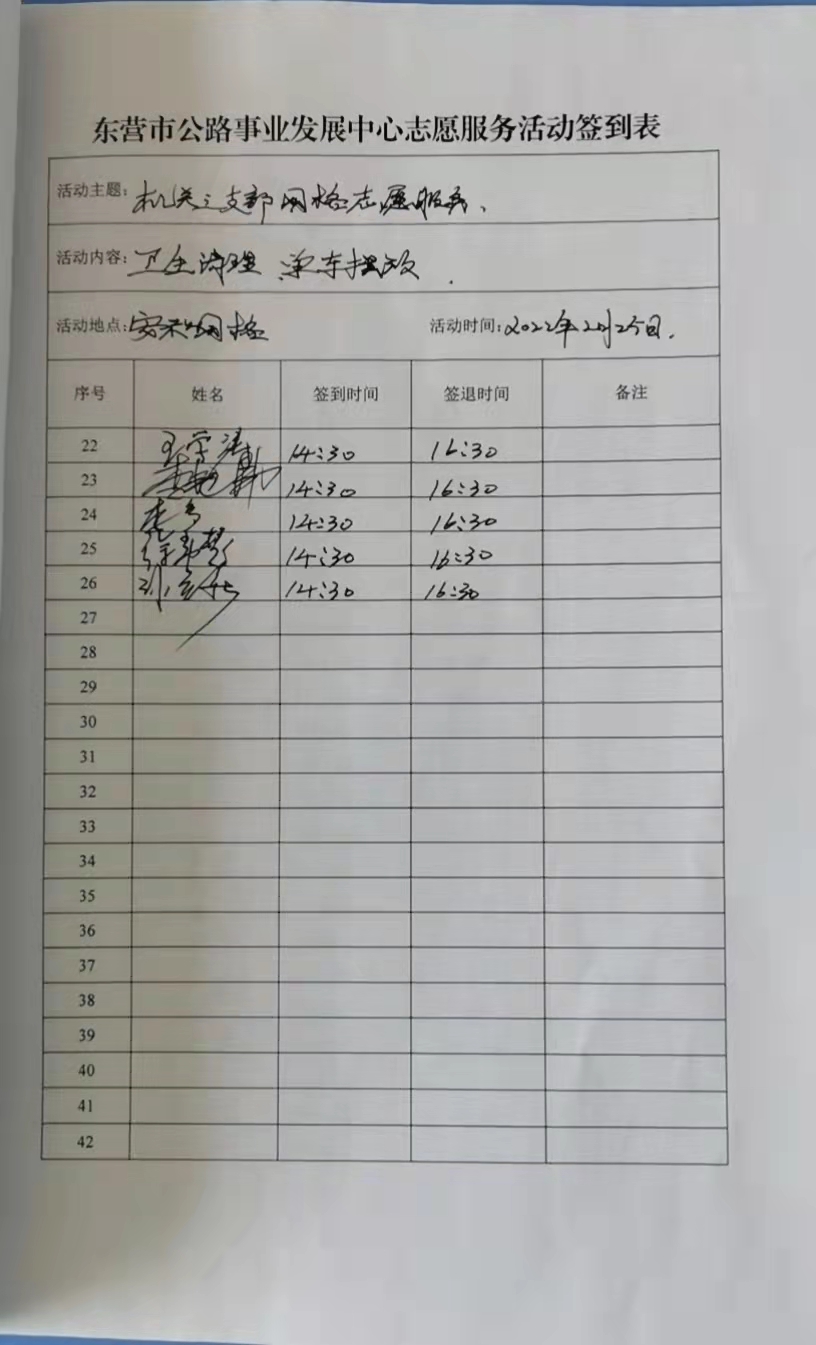 东营市公路事业发展中心志愿服务活动签到表
活动主题: 机关三支部网格志愿服务、
活动内容: 卫生清理 单车摆放.
活动地点: 网格 活动时间: 2022年2月25日.
序号 姓名 签到时间 签退时间 备注
22 14:30 16:30
23 14:30 16:30
24 14:30 16:30
25 14:30 16:30
26 14:30 16:30
27
28
29
30
31
32
33
34
35
36
37
38
39
40
41
42